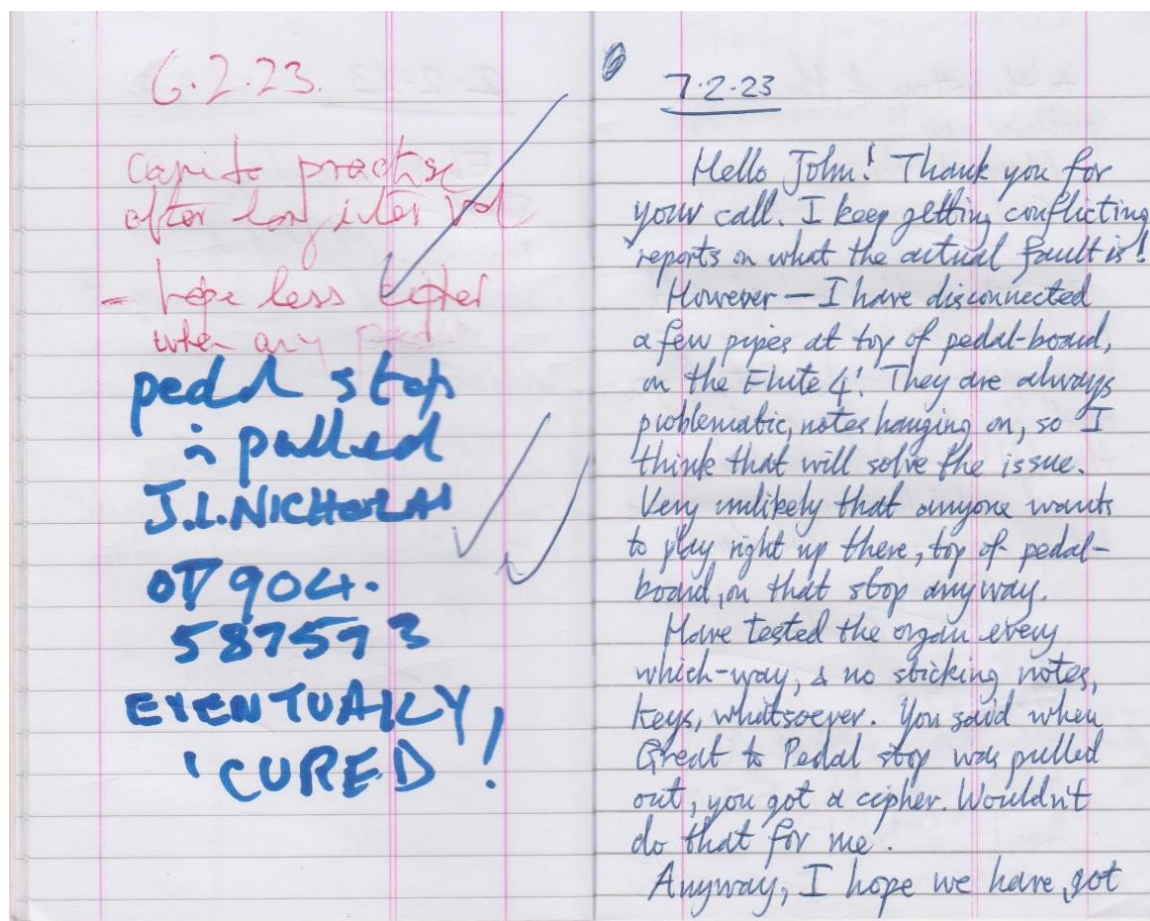 6.2.23.
came to practise
after long interval
- hopeless cipher
when any pedal
pedal stop
is pulled
J.L.NICHOLAS
07904.
587573
EVENTUALLY
'CURED!
7.2.23
Hello John! Thank you for
your call. I keep getting conflicting
reports on what the actual fault is!
However — I have disconnected
a few pipes at top of pedal-board,
on the Flute 4'. They are always
problematic, notes hanging on, so I
think that will solve the issue.
Very unlikely that anyone wants
to play right up there, top of pedal-
board, on that stop anyway.
Have tested the organ every
which-way, & no sticking notes,
keys, whatsoever. You said when
Great to Pedal stop was pulled
out, you got a cipher. Wouldn't
do that for me.
Anyway, I hope we have got